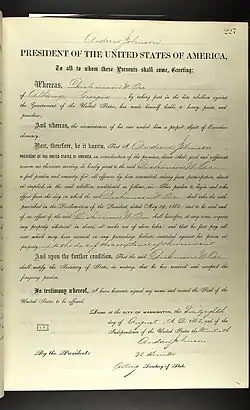 227
Andrew Johnson
PRESIDENT OF THE UNITED STATES OF AMERICA,
To all to whom these Presents shall come, Greeting:
Whereas,
of by taking part in the late rebellion against
the Government of the United States, has made himself liable to heavy pains and
penalties;
And whereas, the circumstances of his case render him a proper object of Executive
clemency;
Now, therefore, be it known, That I, Andrew Johnson,
PRESIDENT OF THE UNITED STATES OF AMERICA, in consideration of the premises, divers other good and sufficient
reasons me thereunto moving, do hereby grant to the said
a full pardon and amnesty for all offences by him committed, arising from participation, direct
or implied, in the said rebellion, conditioned as follows, viz: This pardon to begin and take
effect from the day on which the said shall take the oath
prescribed in the Proclamation of the President, dated May 29th, 1865; and to be void and
of no effect if the said shall hereafter, at any time, acquire
any property whatever in slaves, or make use of slave labor; and that he first pay all
costs which may have accrued in any proceedings hitherto instituted against his person or
property,
And upon the further condition, That the said
shall notify the Secretary of State, in writing, that he has received and accepted the
foregoing pardon.
In testimony whereof, I have hereunto signed my name and caused the Seal of the
United States to be affixed.
Done at the CITY OF WASHINGTON, the
day of August, A. D. 1865, and of the
Independence of the United States the Ninetieth
Andrew Johnson
By the President:
W Hunter
Acting Secretary of State.